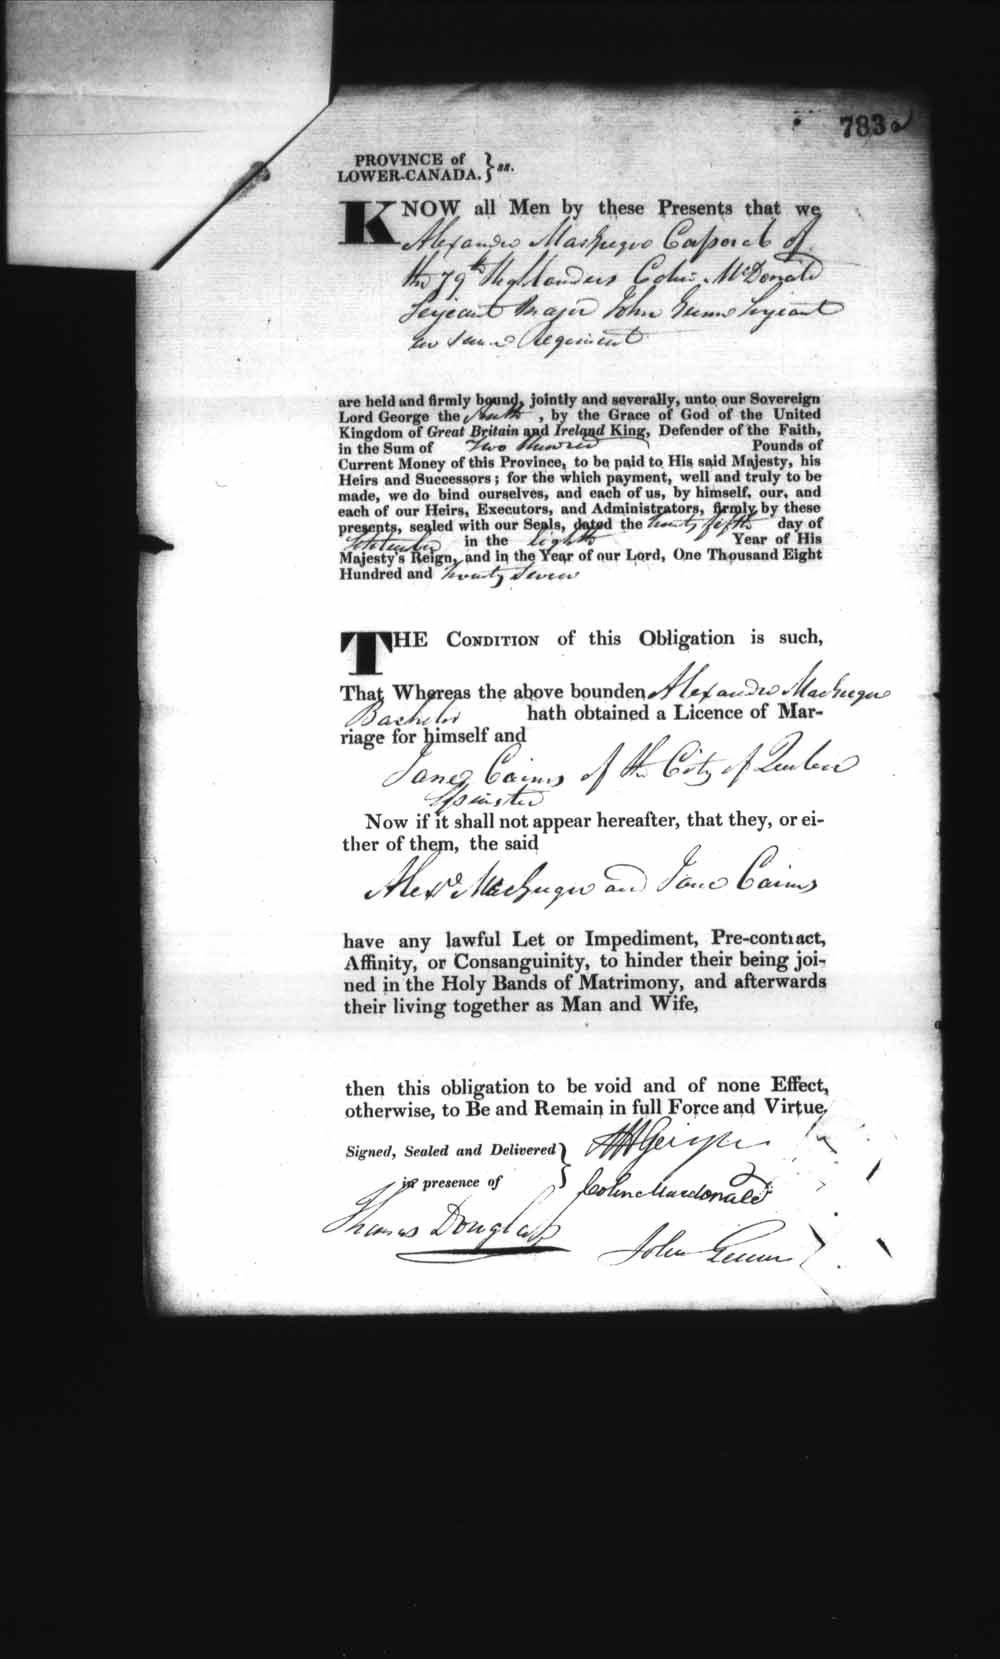 783
PROVINCE of
LOWER-CANADA. } ss.
KNOW all Men by these Presents that we
Alexander MacGregor Corporal of
the 79th Highlanders Colin McDonald
Serjeant Major John Gunn Serjeant
in same Regiment
are held and firmly bound, jointly and severally, unto our Sovereign
Lord George the fourth, by the Grace of God of the United
Kingdom of Great Britain and Ireland King, Defender of the Faith,
in the Sum of Two Hundred Pounds of
Current Money of this Province, to be paid to His said Majesty, his
Heirs and Successors; for the which payment, well and truly to be
made, we do bind ourselves, and each of us, by himself, our, and
each of our Heirs, Executors, and Administrators, firmly by these
presents, sealed with our Seals, dated the twenty fifth day of
September in the eighth Year of His
Majesty's Reign, and in the Year of our Lord, One Thousand Eight
Hundred and twenty seven
THE CONDITION of this Obligation is such,
That Whereas the above bounden Alexander MacGregor
Bachelor hath obtained a Licence of Mar-
riage for himself and
Jane Cairns of the City of Quebec
Spinster
Now if it shall not appear hereafter, that they, or ei-
ther of them, the said
Alexr MacGregor and Jane Cairns
have any lawful Let or Impediment, Pre-contract,
Affinity, or Consanguinity, to hinder their being joi-
ned in the Holy Bands of Matrimony, and afterwards
their living together as Man and Wife,
then this obligation to be void and of none Effect,
otherwise, to Be and Remain in full Force and Virtue.
Signed, Sealed and Delivered }
in presence of
Colin Macdonald
Thomas Douglass
John Gunn